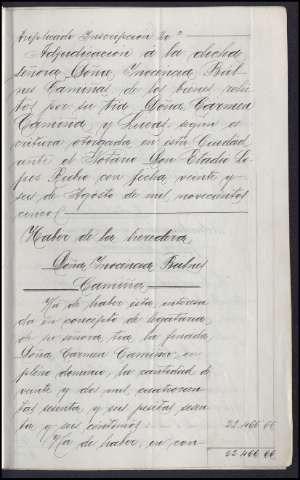 duplicado Inscripcion 20ª
Adjudicacion á la dicha
señora Doña Inocencia Bub
nes Camino, de los bienes relic
tos por su tía Doña Carmen
Camino, y Lucas, segun es
critura otorgada en esta Ciudad
ante el Notario Don Eladio Lo
pes Rubio con fecha veinte y
seis de Agosto de mil novecientos
cinco.
Haber de la heredera,
Doña Inocencia Bubnes
Camino,
Ha de haber esta interesa
da en concepto de legataria,
de su señora, tía, la finada,
Doña Carmen Camino, en
pleno dominio, la cantidad de
veinte y dos mil, cuatrocien
tas sesenta, y seis pesetas sesen
ta, y seis centimos 22.466 66
Ha de haber, en con-
22.466 66